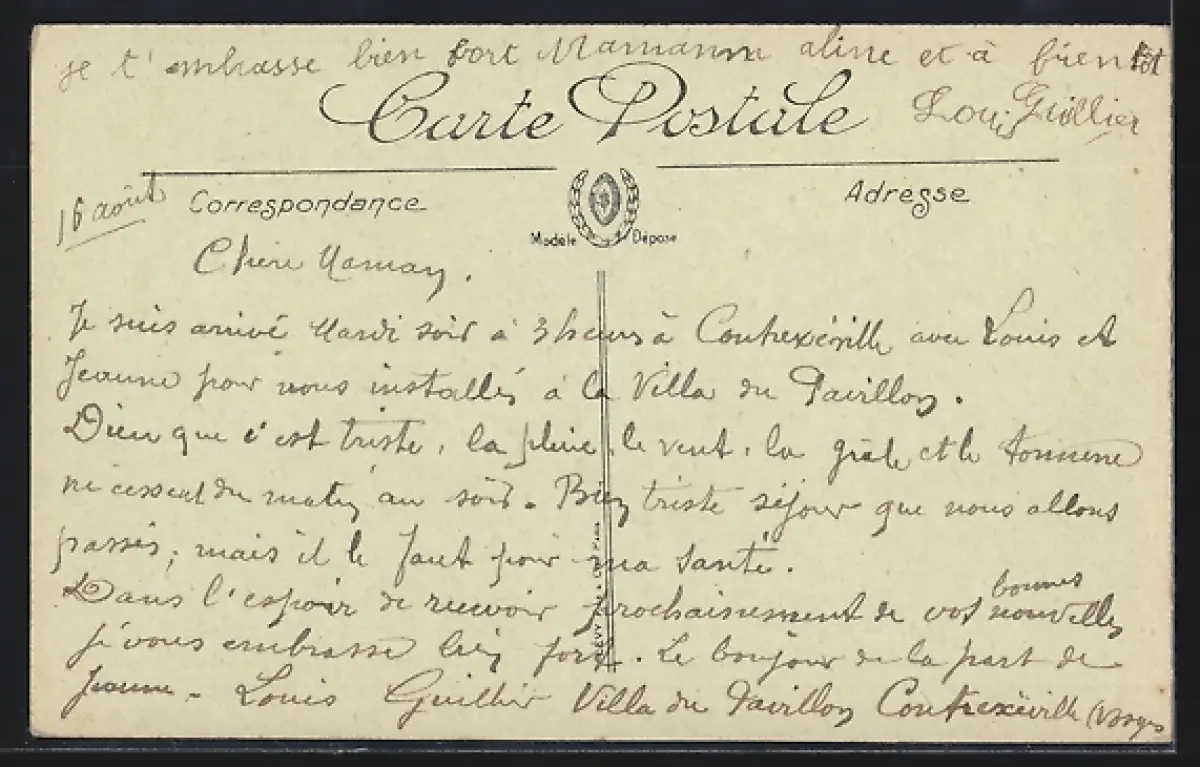 je t'embrasse bien fort Mamann aline et à bientôt
Carte Postale
Loui Guillier
16 août
Correspondance
Adresse
Modèle Déposé
Chère Maman,
Je suis arrivé Mardi soir à 3 heures à Contrexéville avec Louis et
Jeanne pour nous installés à la Villa du Pavillon.
Dieu que c'est triste, la pluie, le vent, la grêle et le tonnerre
ne cessent du matin au soir. Bien triste séjour que nous allons
passés, mais il le faut pour ma santé.
Dans l'espoir de recevoir prochainement de vos bonnes nouvelles
je vous embrasse bien fort. Le bonjour de la part de
Jeanne - Louis Guillier Villa du Pavillon Contrexéville (Vosges